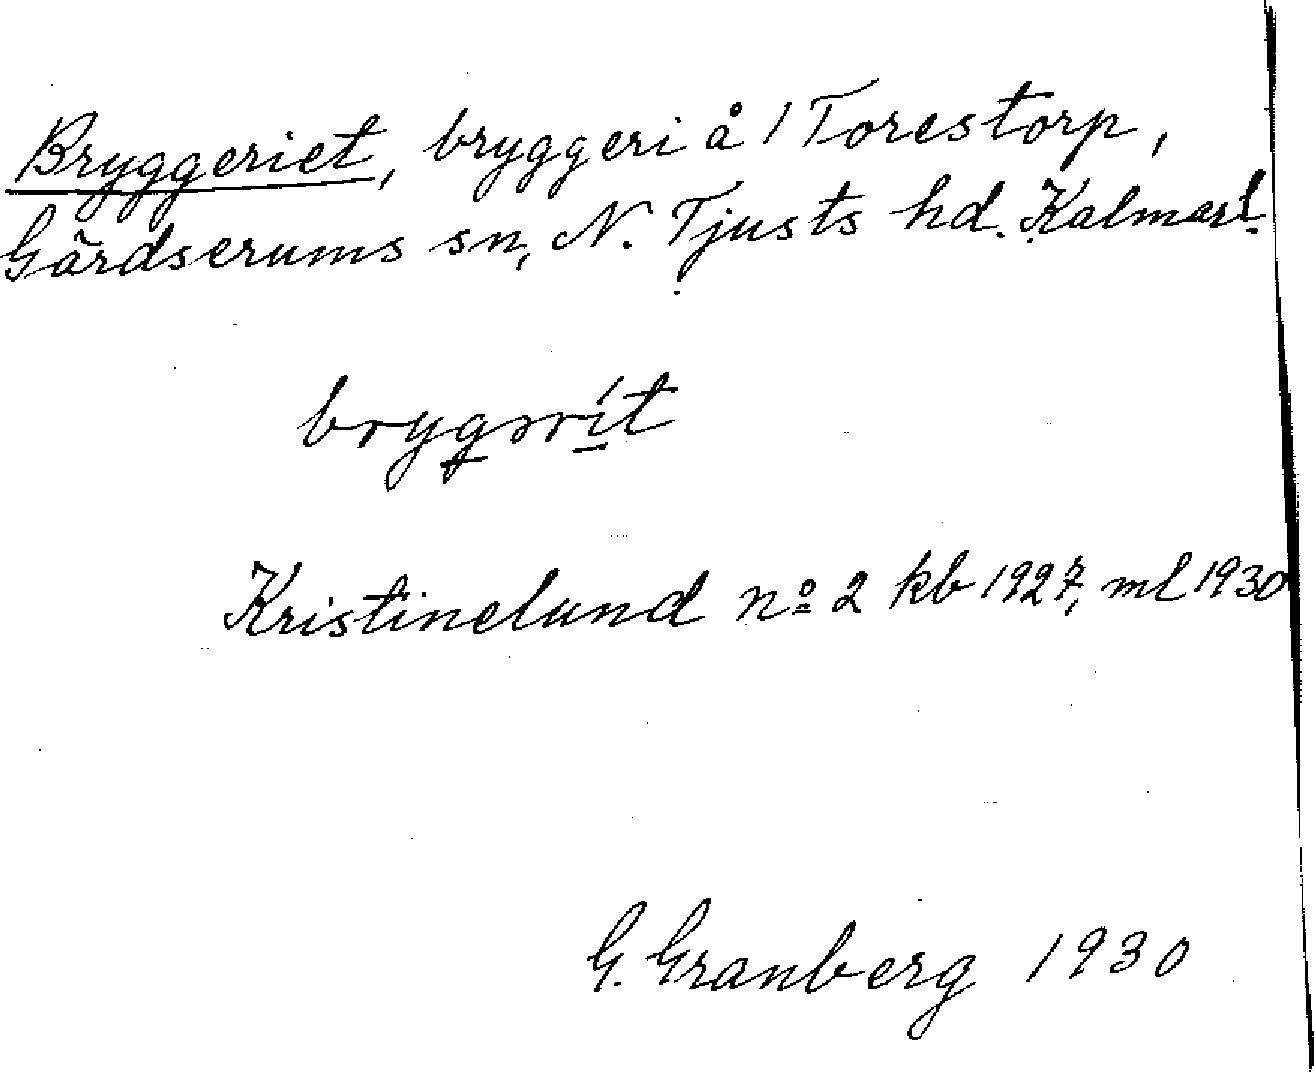 Bryggeriet, bryggeri å 1 Torestorp,
Gärdserums sn, N. Tjusts hd. Kalmar l.
brygərít
Kristinelund nº 2 kb 1927, ml 1930
G. Granberg 1930